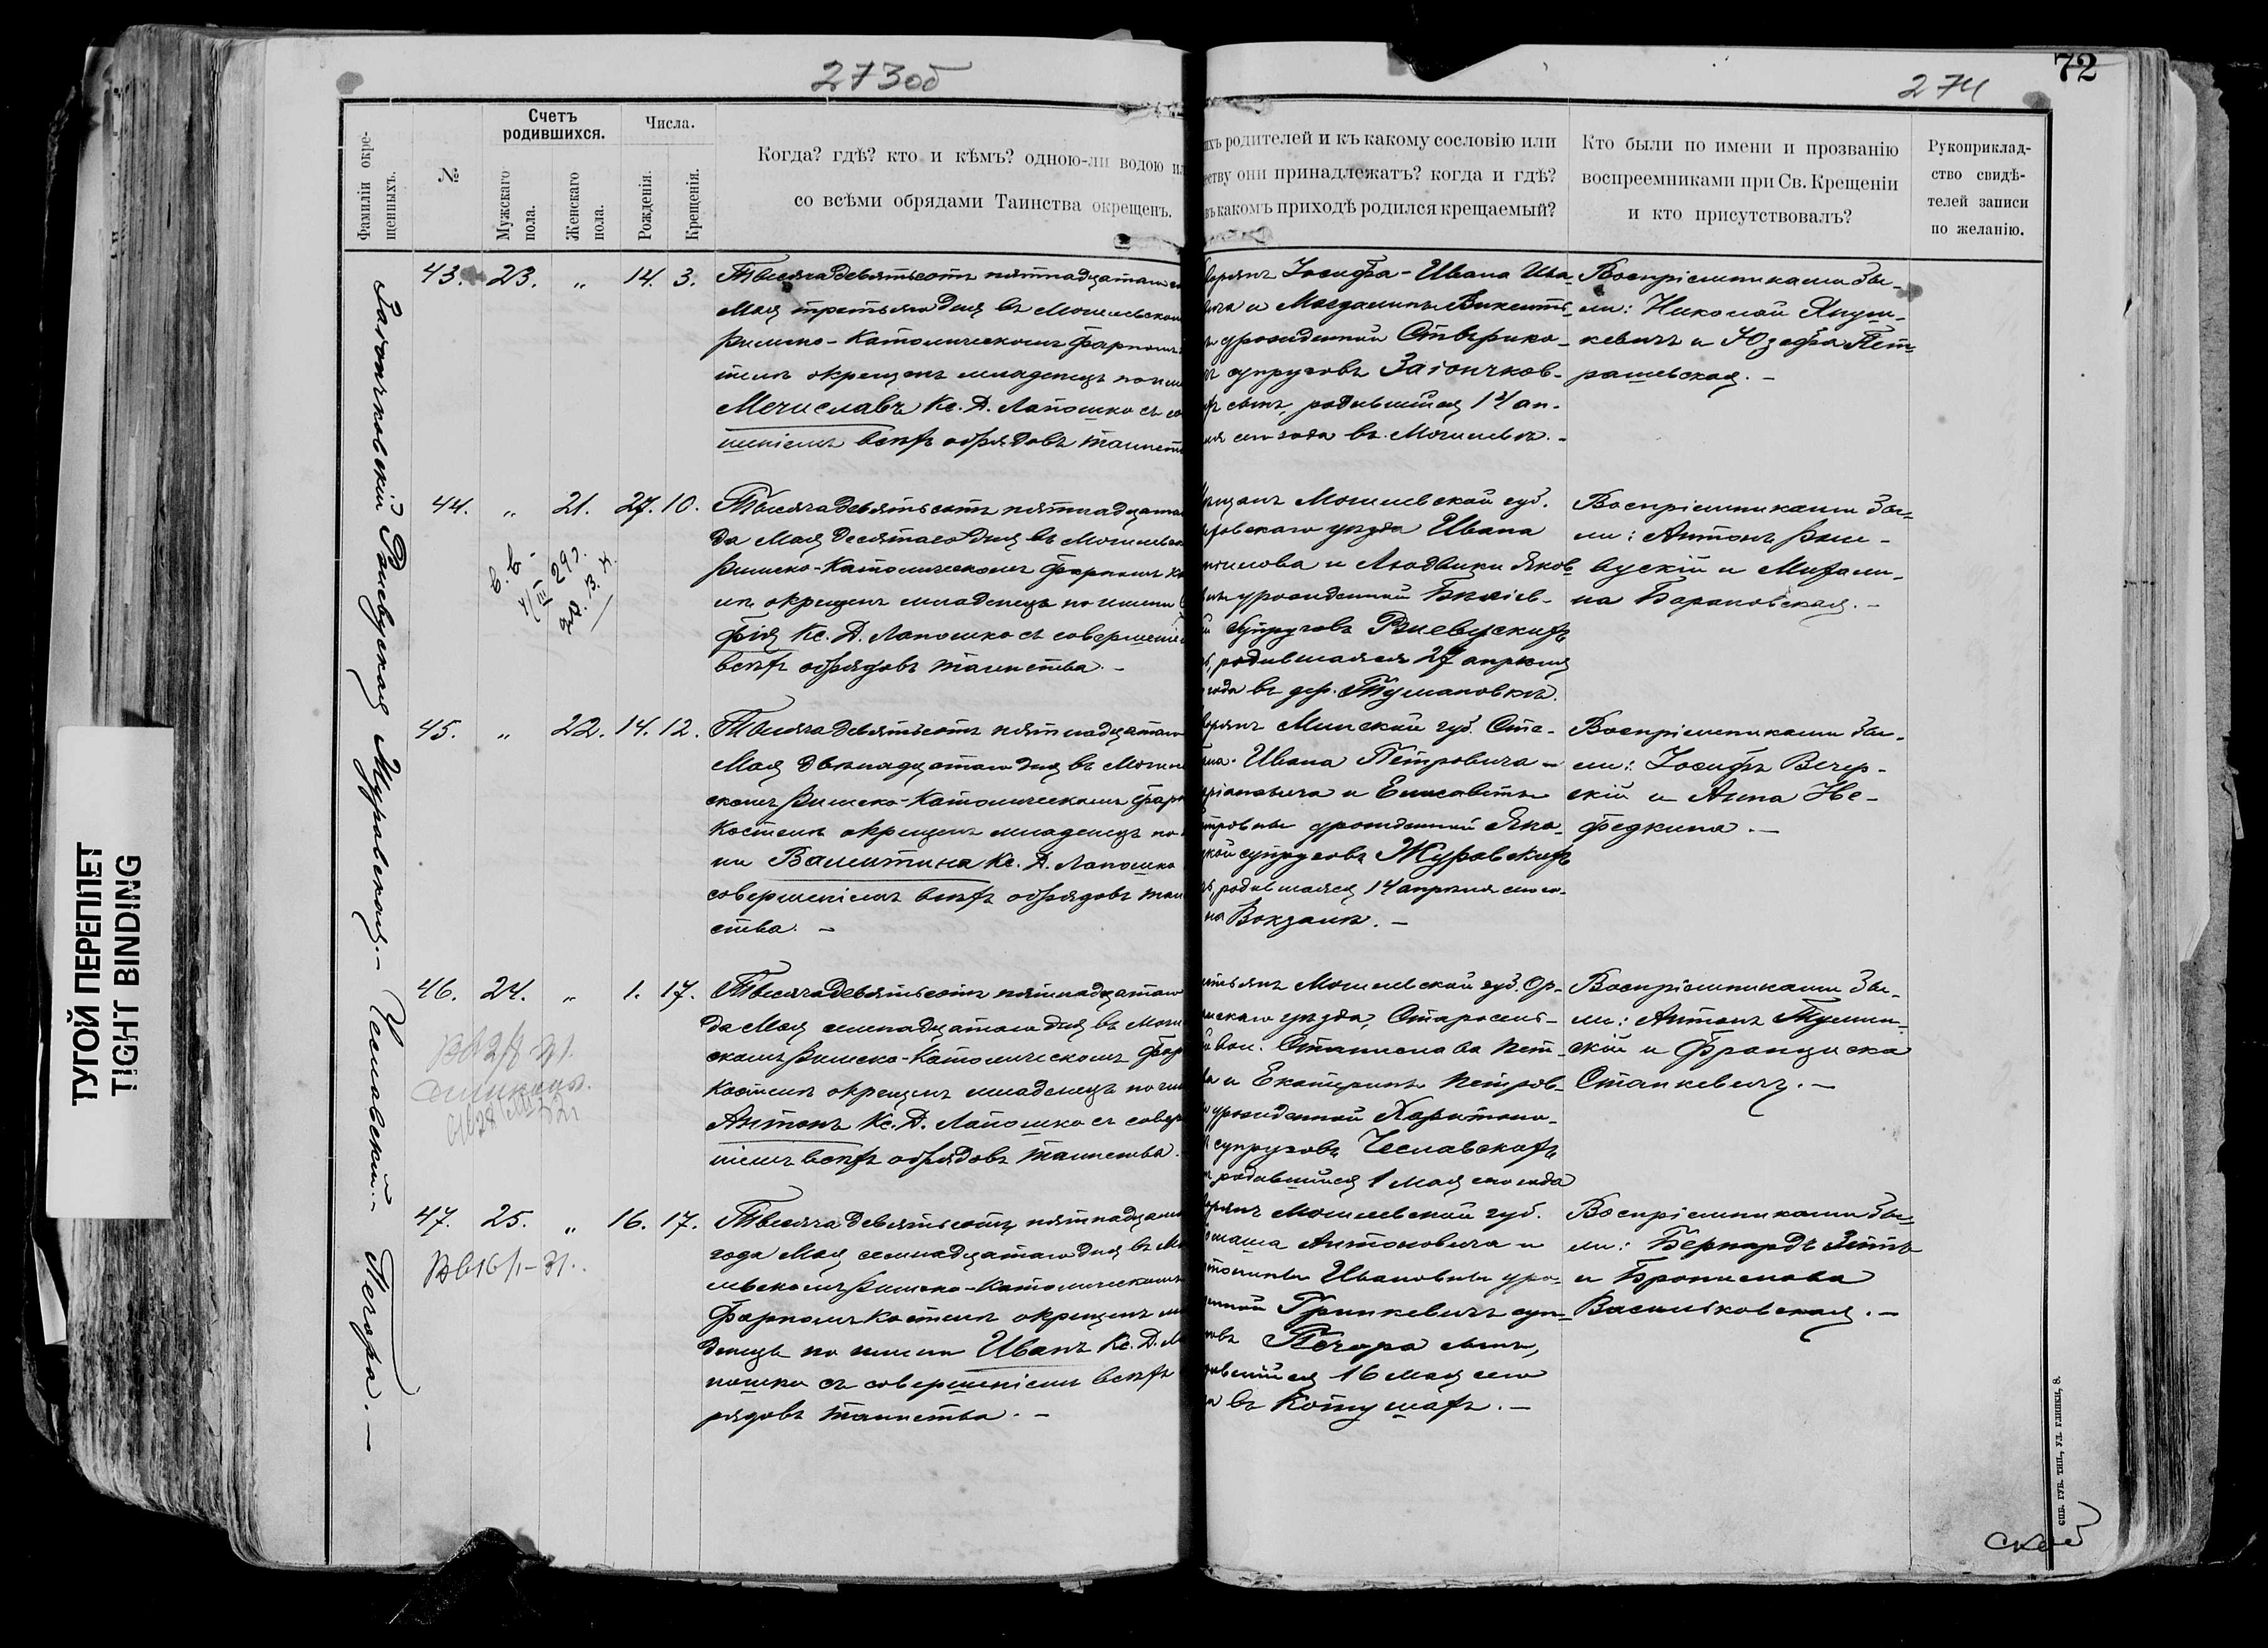 273 об
274
72
ТУГОЙ ПЕРЕПЛЕТ
TIGHT BINDING
Фамиліи окре-
щенныхъ.
№
Счетъ
родившихся.
Мужскаго
пола.
Женскаго
пола.
Числа.
Рожденія.
Крещенія.
Когда? гдѣ? кто и кѣмъ? одною-ли водою и
со всѣми обрядами Таинства окрещенъ.
ихъ родителей и къ какому сословію или
еству они принадлежатъ? когда и гдѣ?
въ какомъ приходѣ родился крещаемый?
Кто были по имени и прозванію
воспреемниками при Св. Крещеніи
и кто присутствовалъ?
Рукоприклад-
ство свидѣ-
телей записи
по желанію.
Загончковскій
43. 23. „ 14. 3.
Тысяча девятьсотъ пятнадцатаго
Мая третьяго дня въ Могилевском
Римско-Католическомъ фарномъ
телѣ окрещенъ младенецъ по им
Мечиславъ Кс. Д. Лапошко съ со
шеніемъ всѣхъ обрядовъ таинст
ворянъ Іосифа-Ивана Ива-
вича и Магдалины Викентьев-
урожденной
супруговъ Загончков-
сынъ, родившійся 14 ап-
сего года въ Могилевѣ. -
Воспріемниками бы-
ли: Николай Януш-
кевичъ и Юзефа Пет-
рашевская. -
Риевуская
44. „ 21. 27. 10.
Тысяча девятьсотъ пятнадцата
да Мая десятаго дня въ Могилевск
Римско-Католическомъ фарномъ ко
лѣ окрещенъ младенецъ по имени
фія Кс. Д. Лапошко съ совершеніе
всѣхъ обрядовъ таинства. -
ѣщанъ Могилевской губ.
ровскаго уѣзда Ивана
и Людвики Яков-
урожденной
супруговъ Риевускихъ
родившаяся 27 апрѣля
года въ дер. Тумановкѣ.
Воспріемниками бы-
ли: Антонъ Рыше-
вускій и Михали-
на Барановская. -
Журавская. -
45. „ 22. 14. 12.
Тысяча девятьсотъ пятнадцатаго
Мая двѣнадцатаго дня въ Могиле
скомъ Римско-Католическомъ фарн
костелѣ окрещенъ младенецъ по
ни Валентина Кс. Д. Лапошко
совершеніемъ всѣхъ обрядовъ таи
ства. -
ворянъ Минской губ. Сте-
Ивана Петровича -
и Елисаветы
тровны урожденной Яно-
супруговъ Журавскихъ
родившаяся 14 апрѣля сего го-
на Вокзалѣ. -
Воспріемниками бы-
ли: Іосифъ Вечер-
скій и Анна Не-
федкина. -
Чеславскій. -
46. 24. „ 1. 17.
Тысяча девятьсотъ пятнадцатаго
да Мая семнадцатаго дня въ Моги
скомъ Римско-Католическомъ фар
костелѣ окрещенъ младенецъ по им
Антонъ Кс. Д. Лапошко съ совер
ніемъ всѣхъ обрядовъ таинства.
Могилевской губ. Ор-
шскаго уѣзда, Старосель-
вол. Станислава Пет-
и Екатерины Петров-
урожденной Харитоно-
супруговъ Чеславскихъ
родившійся 1 Мая сего года
Воспріемниками бы-
ли: Антонъ Тумин-
скій и Франциска
Станкевичъ. -
Печора. -
47. 25. „ 16. 17.
Тысяча девятьсотъ пятнадцата
года Мая семнадцатаго дня въ Мо
левскомъ Римско-Католическомъ
фарномъ костелѣ окрещенъ мл
денецъ по имени Иванъ Кс. Д. Ла
пошко съ совершеніемъ всѣхъ
рядовъ таинства. -
ворянъ Могилевской губ.
Антоновича и
Ивановны уро-
Гринкевичъ суп-
овъ Печора сынъ,
16 Мая сего
въ Котушахъ. -
Воспріемниками бы-
ли: Бернардъ
и Бронислава
Васильковская. -
СПБ. ГУБ. ТИП., УЛ. ГЛИНКИ, 8.